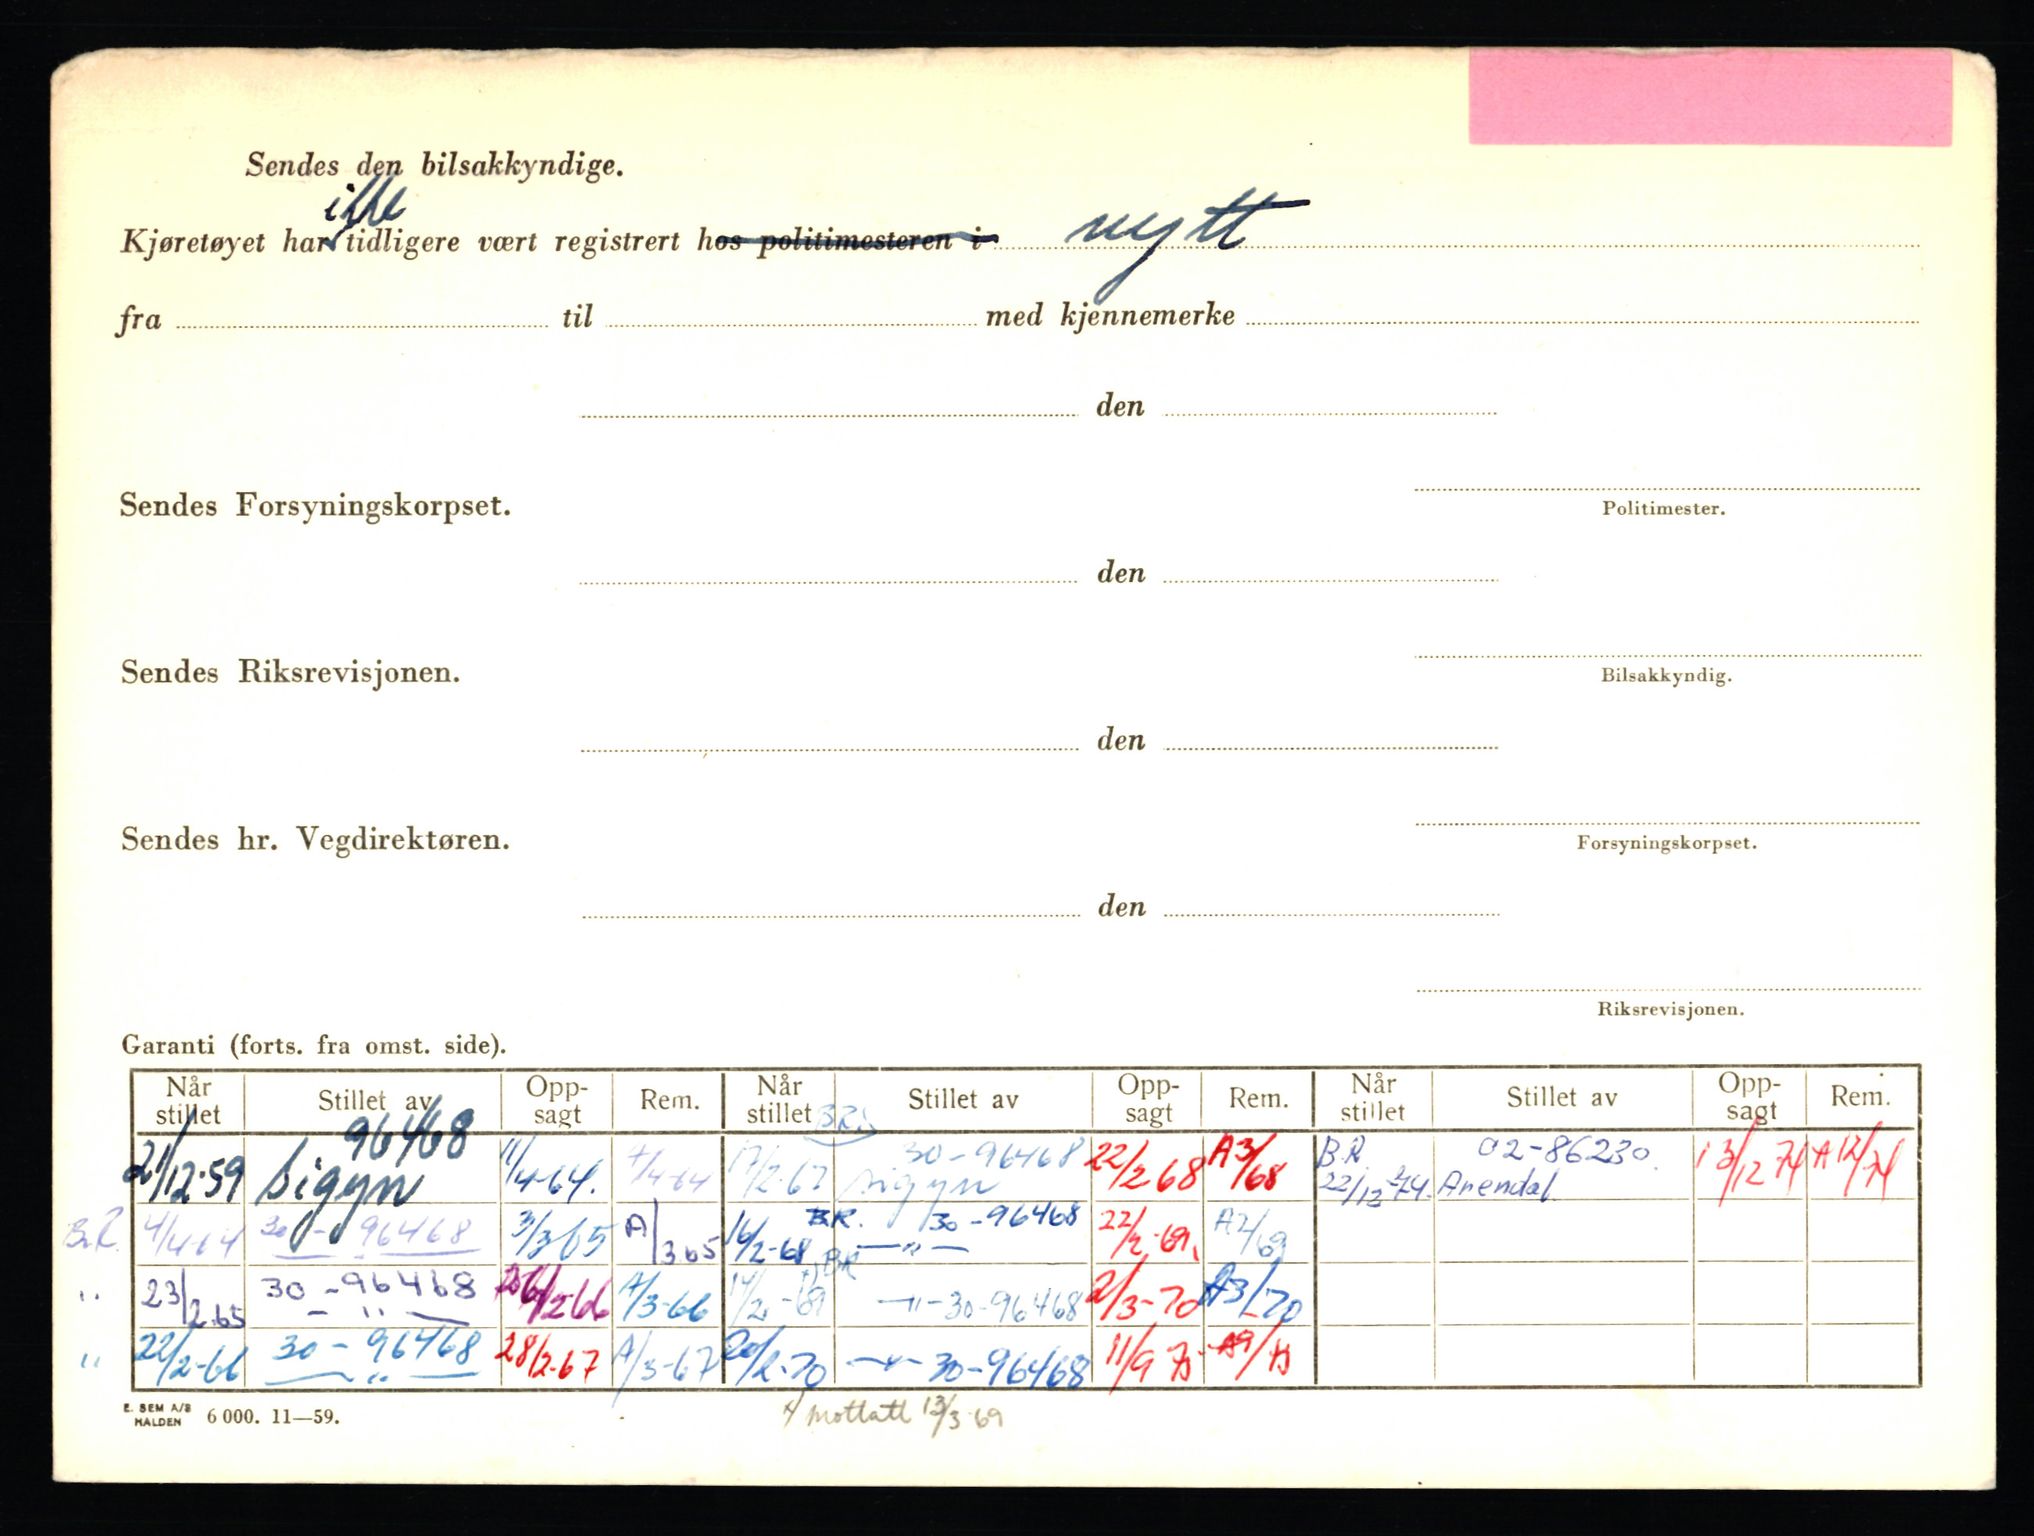 Sendes den bilsakkyndige.
ikke
Kjøretøyet har tidligere vært registrert hos politimesteren i nytt
fra til med kjennemerke
den
Sendes Forsyningskorpset.
Politimester.
den
Sendes Riksrevisjonen.
Bilsakkyndig.
den
Sendes hr. Vegdirektøren.
Forsyningskorpset.
den
Riksrevisjonen.
Garanti (forts. fra omst. side).
Når stillet Stillet av Opp-sagt Rem. Når stillet Stillet av Opp-sagt Rem. Når stillet Stillet av Opp-sagt Rem.
21/12-59 96468 Sigyn 11/4-64. 4/4-64 17/2-67 30-96468 Sigyn 22/2 68 A3/68 B.R 22/12 02-86230 Arendal 13/12 74 A 12/74
B.R. 4/4-64 30-96468 3/3 65 A/3 65 16/2-68 B.R. 30-96468 -"- 22/2-69 A2/69
" 23/2.65 30-96468 -"- 26/2-66 A/3-66 BR -"- 30-96468 2/3-70 A3/70
" 22/2-66 30-96468 -"- 28/2-67 A/3-67 20/2-70 -"- 30-96468 11/9
E. SEM A/S HALDEN 6 000. 11—59.
Mottatt 13/3-69